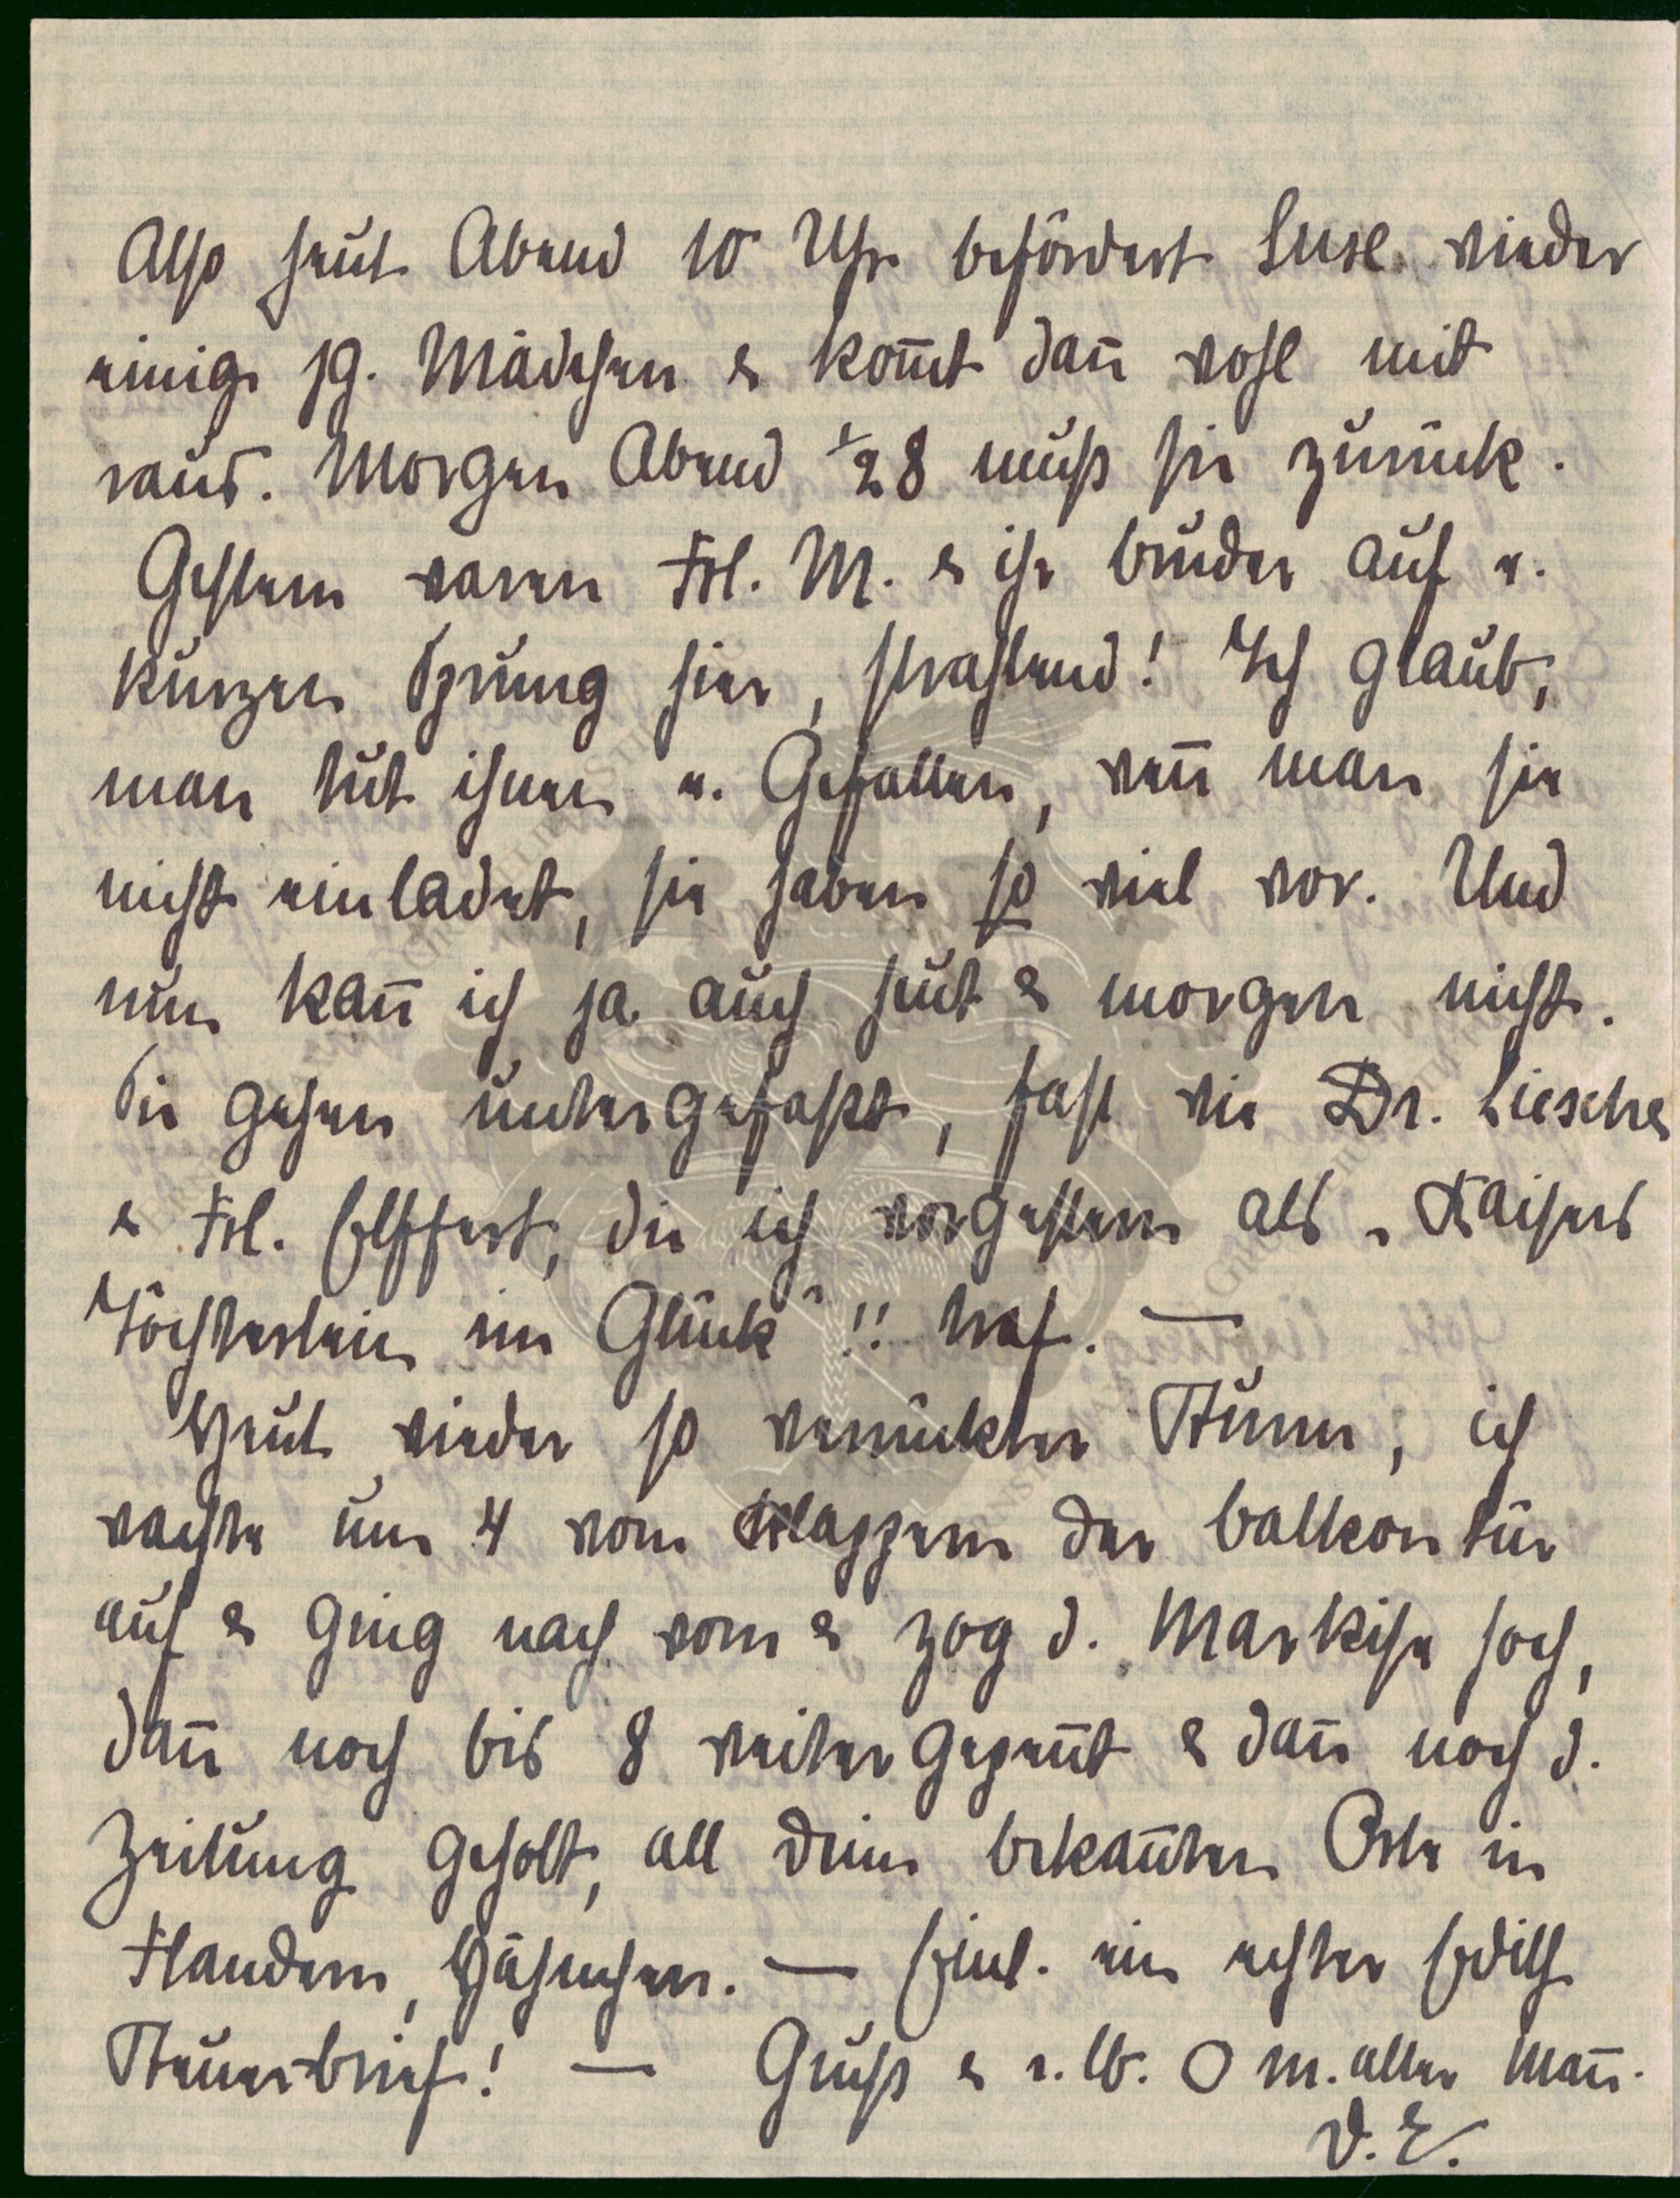 Also heut Abend 10 Uhr befördert Suse wieder
einige jg. Mädchen & kom̅t dan̅ wohl mit
raus. Morgen Abend ½8 muß sie zurück.
Gestern waren Frl. M. & ihr Bruder auf e.
kurzen Sprung hier, strahlend! Ich glaub,
man tut ihnen e. Gefallen, wen̅ man sie
nicht einladet, sie haben so viel vor. Und
nun kan̅ ich ja auch heut & morgen nicht.
Sie gehen untergefaßt, fast wie Dr. Liesche
& Frl. Elffert, die ich vorgestern als „Kaisers
Töchterlein im Glück"!! traf. —
Heut wieder so verrückter Sturm, ich
wachte um 4 vom Klappern der Balkontür
auf & ging nach vorn & zog d. Markise hoch,
dan̅ noch bis 8 weiter gepen̅t & dan̅ noch d.
Zeitung geholt, all Deine bekan̅ten Orte in
Flandern, Hähnchen. — Einl. ein echter Edith
Steuerbrief! — Gruß & e. lb. O m. alter Man̅.
D. E.